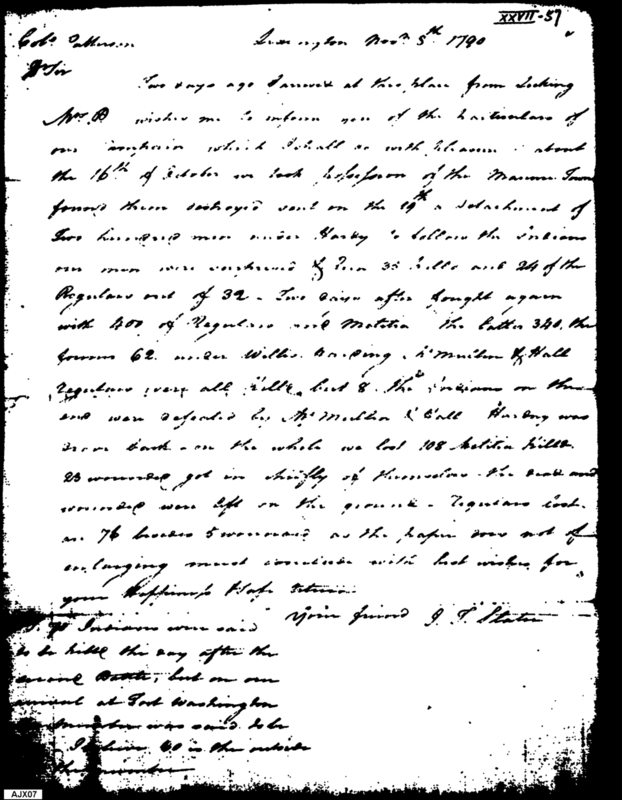 XXVII-57
Colo. Patterson Lexington Novr. 5th 1790
Dr Sir
Two days ago I arrived at this place from Licking
Mrs. P wishes me to inform you of the particulars of
our campaign which I shall do with pleasure about
the 16th of October we took possession of the Maume Towns
found them destroyed sent on the 19th a detachment of
Two hundred men under Hardy to follow the Indians
our men were surprised & 33 kills and 24 of the
Regulars out of 32 - Two days after fought again
with 400 of Regulars and Metitia the latter 340, the
former 62 under Willis. Harding, McMullin & Hall
Regulars were all kills but 8. the Indians on
and were defeated by McMullin & Hall Hardy was
drove back - on the whole we lost 108 Metitia kills
23 wounded got in chiefly of themselves the dead and
wounded were left on the ground - Regulars lost
76 besides 5 wounded as the paper not of
enlarging must conclude with best wishes for
your Happiness & safe return
Your friend J. T. Slater
Indians were said
to be kills the day after the
second but on our
arrival at Fort Washington
number was said to be
I believe 40 is the outside
the number
AJX07